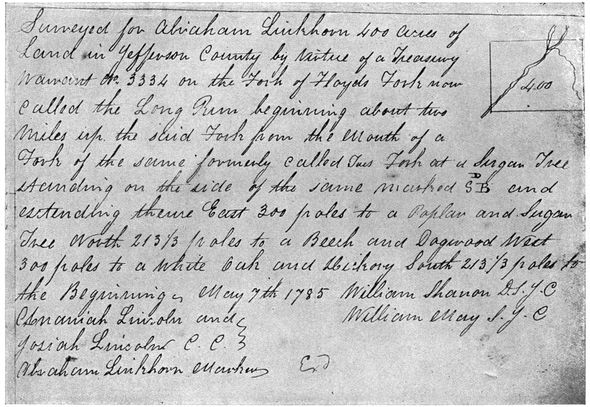 Surveyed for Abraham Linkhorn 400 acres of
Land in Jefferson County by Virtue of a Treasury
Warrant No. 3334 on the Fork of Floyds Fork now
called the Long Run beginning about two
Miles up the said Fork from the Mouth of a
Fork of the same formerly called Tues Fork at a Sugar Tree
standing on the side of the same marked SDB and
extending thence East 300 poles to a Poplar and Sugar
Tree North 213 1/3 poles to a Beech and Dogwood West
300 poles to a White Oak and Hickory South 213 1/3 poles to
the Beginning May 7th 1785 William Shanon D.S.J.C
Annaniah Lincoln and William May S.J.C
Josiah Lincoln C. C.
Abraham Linkhorn Marker Exd
400